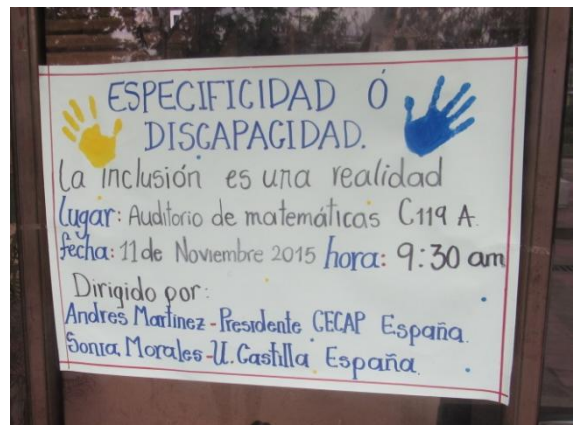 ESPECIFICIDAD Ó
DISCAPACIDAD.
La inclusión es una realidad
lugar: Auditorio de matemáticas C119 A.
y
fecha: 11 de Noviembre 2015 hora: 9:30 am
Dirigido por:
Andres Martinez - Presidente CECAP España.
Sonia Morales - U. Castilla España.